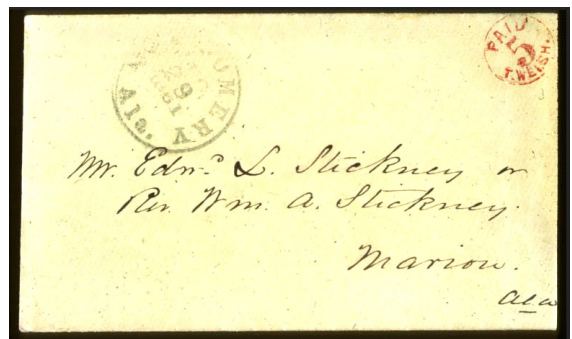 PAID
5
T. WELSH.
MONTGOMERY
29
1861
Ala.
Mr. Edwd. L. Stickney or
Rev. Wm. A. Stickney.
Marion.
Ala